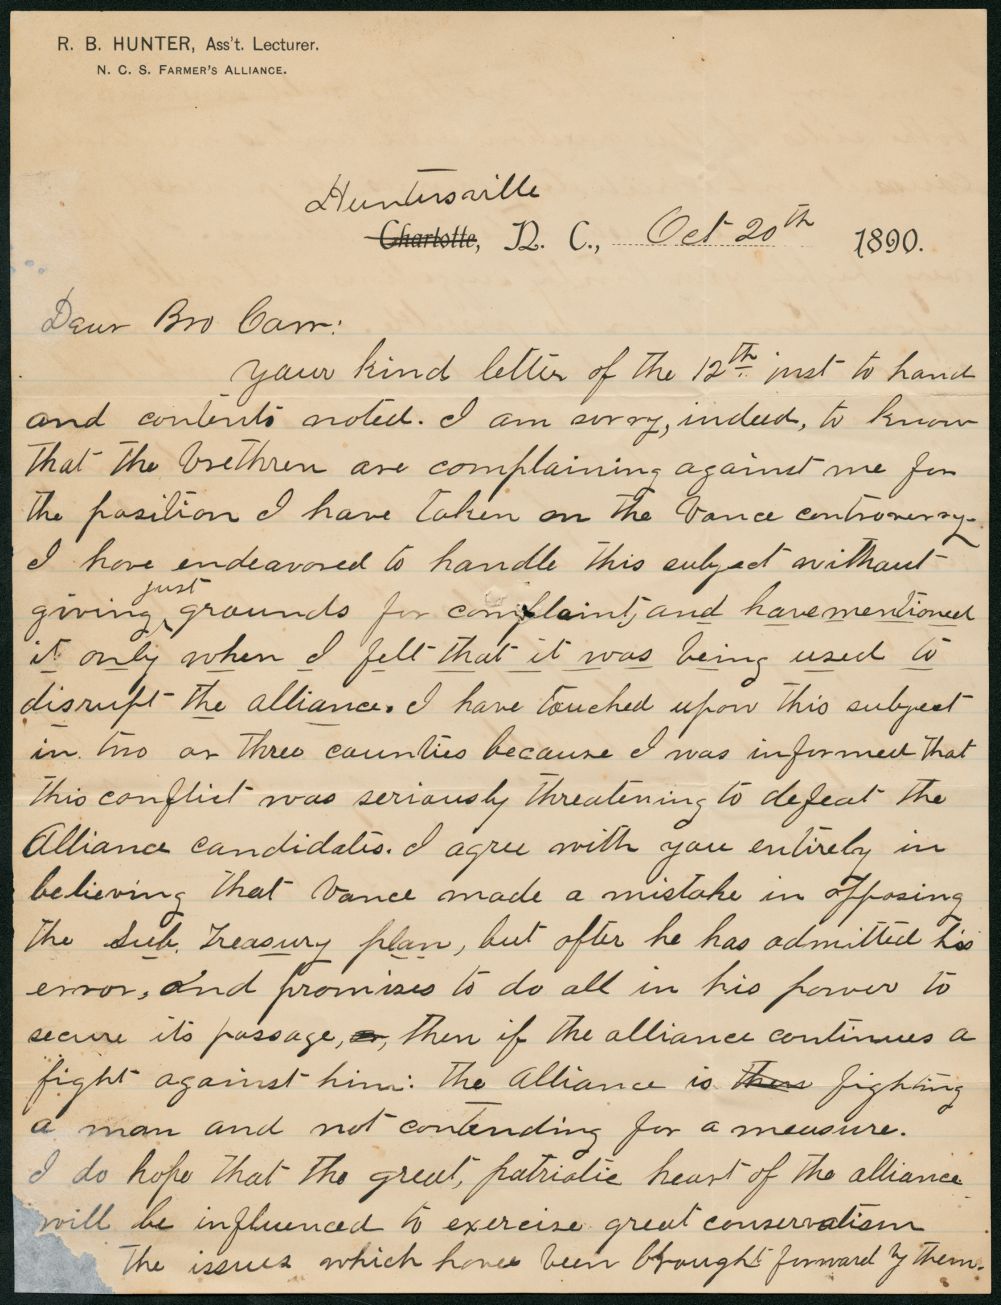 R. B. HUNTER, Ass't. Lecturer.
N. C. S. FARMER'S ALLIANCE.
Huntersville
Charlotte, N. C., Oct 20th 1890.
Dear Bro Carr:
Your kind letter of the 12th just to hand
and contents noted. I am sorry, indeed, to know
that the brethren are complaining against me for
the position I have taken on the Vance controversy.
I have endeavored to handle this subject without
just
giving grounds for complaint, and have mentioned
it only when I felt that it was being used to
disrupt the alliance. I have touched upon this subject
in two or three counties because I was informed that
this conflict was seriously threatening to defeat the
Alliance candidates. I agree with you entirely in
believing that Vance made a mistake in opposing
the Sub. Treasury plan, but after he has admitted his
error, and promises to do all in his power to
secure its passage, then if the alliance continues a
fight against him: the alliance is thus fighting
a man and not contending for a measure.
I do hope that the great, patriotic heart of the alliance
will be influenced to exercise great conservatism
the issues which have been brought forward by them.